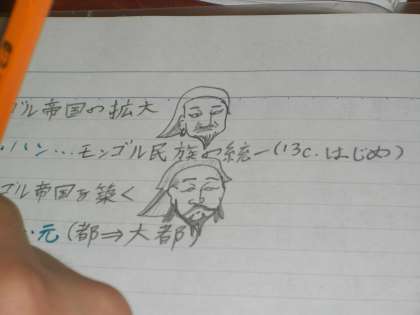 ゴル帝国の拡大
・ハン…モンゴル民族の統一(13c.はじめ)
ゴル帝国を築く
・元(都⇒大都)